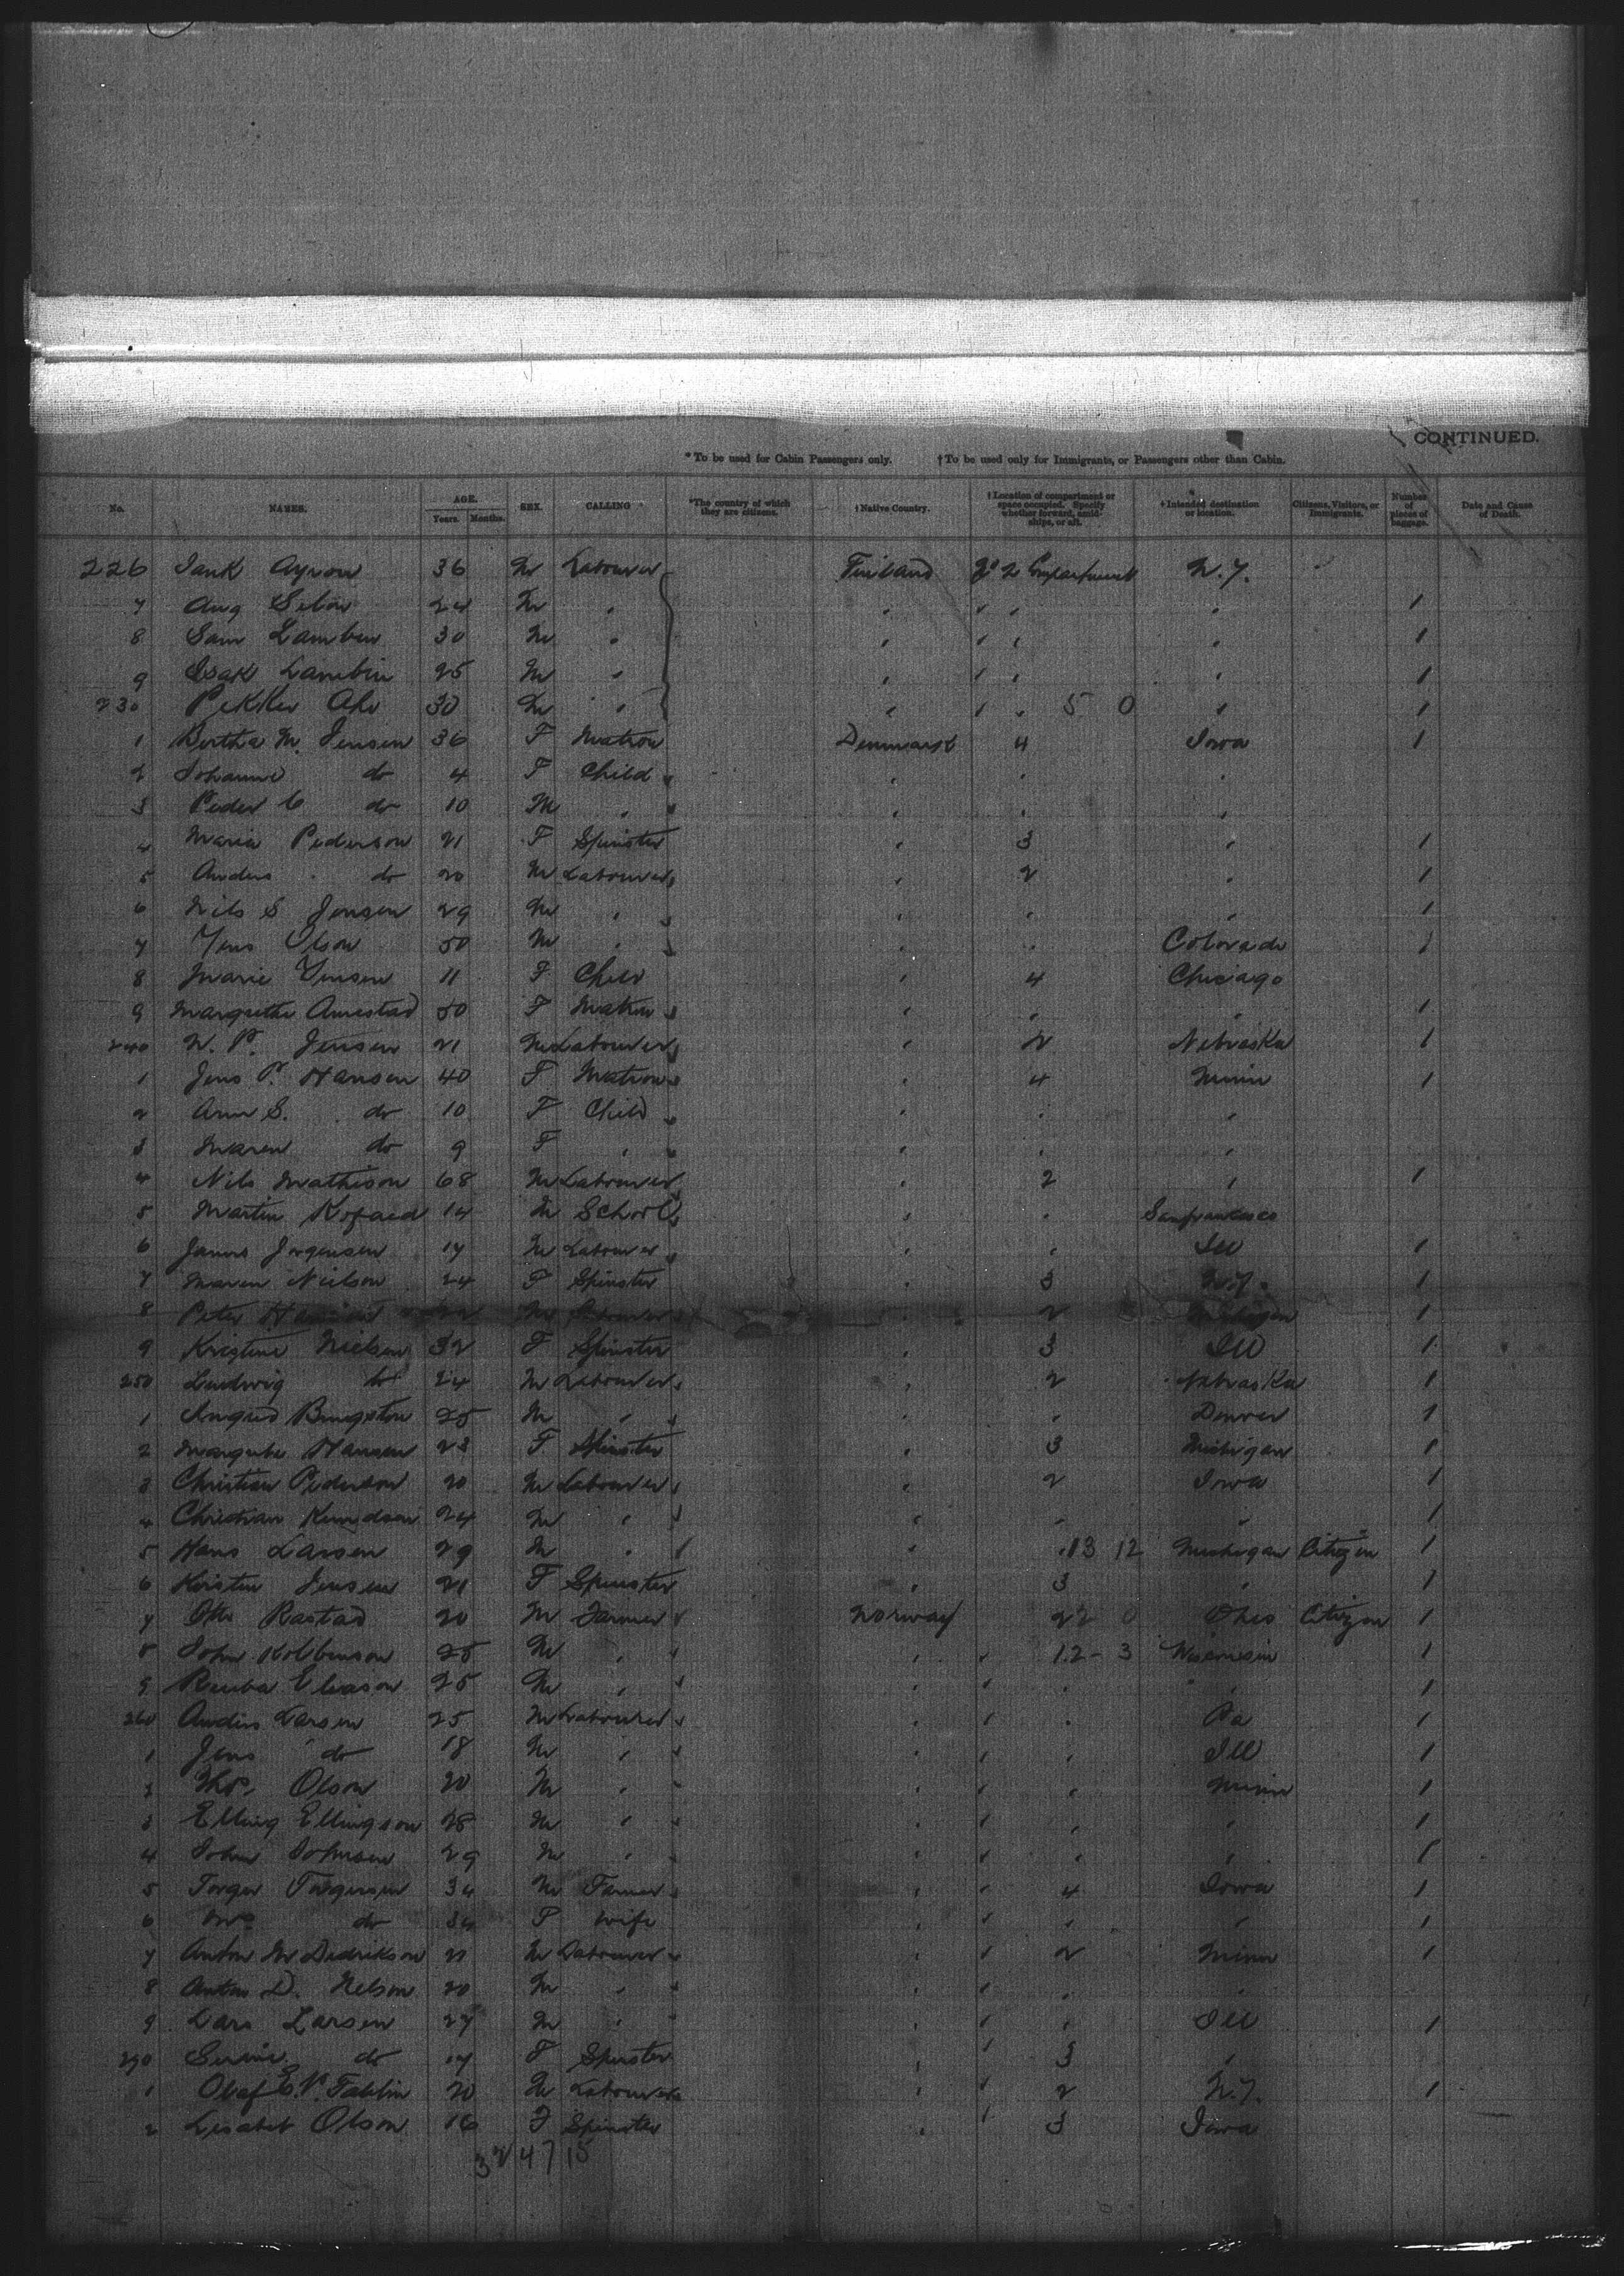 CONTINUED.
* To be used for Cabin Passengers only. † To be used only for Immigrants, or Passengers other than Cabin.
No. NAMES. AGE. Years. Months. SEX. CALLING *The country of which they are citizens. †Native Country. †Location of compartment or space occupied. Specify whether forward, amidships, or aft. †Intended destination or location. Citizens, Visitors, or Immigrants. Number of pieces of baggage. Date and Cause of Death.
226 36 M Labourer Finland No 2 Compartment N.Y.
7 Aug 24 M " " " " " 1
8 Sam 30 M " " " " " 1
9 Isak 25 M " " " " " 1
230 30 M " " " " 5 0 " 1
1 Bertha M. Jensen 36 F Matron Denmark 4 Iowa 1
2 Johanne do 4 F Child " " "
3 Peder C do 10 M " " " "
4 Maria Pederson 21 F Spinster " 3 " 1
5 Anders do 20 M Labourer " 2 " 1
6 Nils S Jensen 29 M " " " " 1
7 Jens Olson 50 M " " " Colorado 1
8 Marie Jensen 11 F Child " 4 Chicago
9 Margrethe 50 F Matron " " " 1
240 N. P. Jensen 21 M Labourer " 2 Nebraska 1
1 Jens P. Hansen 40 F Matron " 4 Minn 1
2 Ann S. do 10 F Child " " "
3 Maren do 9 F " " " "
4 Nils Mathison 68 M Labourer " 2 " 1
5 Martin Kofaed 14 M School " " Sanfrancisco
6 James Jorgensen 17 M Labourer " " Ill 1
7 Maren Nielson 24 F Spinster " 3 N.Y. 1
8 Peter M Labourer " 2 Michigan 1
9 Kristine Nielsen 32 F Spinster " 3 Ill 1
250 Ludwig do 24 M Labourer " 2 Nebraska 1
1 25 M " " " Denver 1
2 Hansen 23 F Spinster " 3 Michigan 1
3 Christian Pederson 20 M Labourer " 2 Iowa 1
4 Christian Knudson 24 M " " " " 1
5 Hans Larsen 29 M " " " 13 12 Michigan Citizen 1
6 Kirstin Jensen 21 F Spinster " 3 " 1
7 Otto Rastad 20 M Farmer Norway 22 0 Ohio Citizen 1
8 John 25 M " " " 1.2-3 Wisconsin 1
9 Eliason 25 M " " " " " 1
260 Anders Larsen 25 M Labourer " " " Pa 1
1 Jens do 18 M " " " " Ill 1
2 Thos Olson 20 M " " " " Minn 1
3 Elling Ellingson 28 M " " " " " 1
4 John Johnsen 29 M " " " " " 1
5 Torger Torgersen 34 M Farmer " " 4 Iowa 1
6 Mrs do 34 F Wife " " " " 1
7 Anton M Didrikson 21 M Labourer " " 2 Minn 1
8 Anton D. Nelson 20 M " " " " "
9 Lars Larsen 27 M " " " " Ill 1
270 do 17 F Spinster " " 3 "
1 Olaf 20 M Labourer " " 2 N.Y. 1
2 Lisabet Olson 16 F Spinster " " 3 Iowa
32 47 15